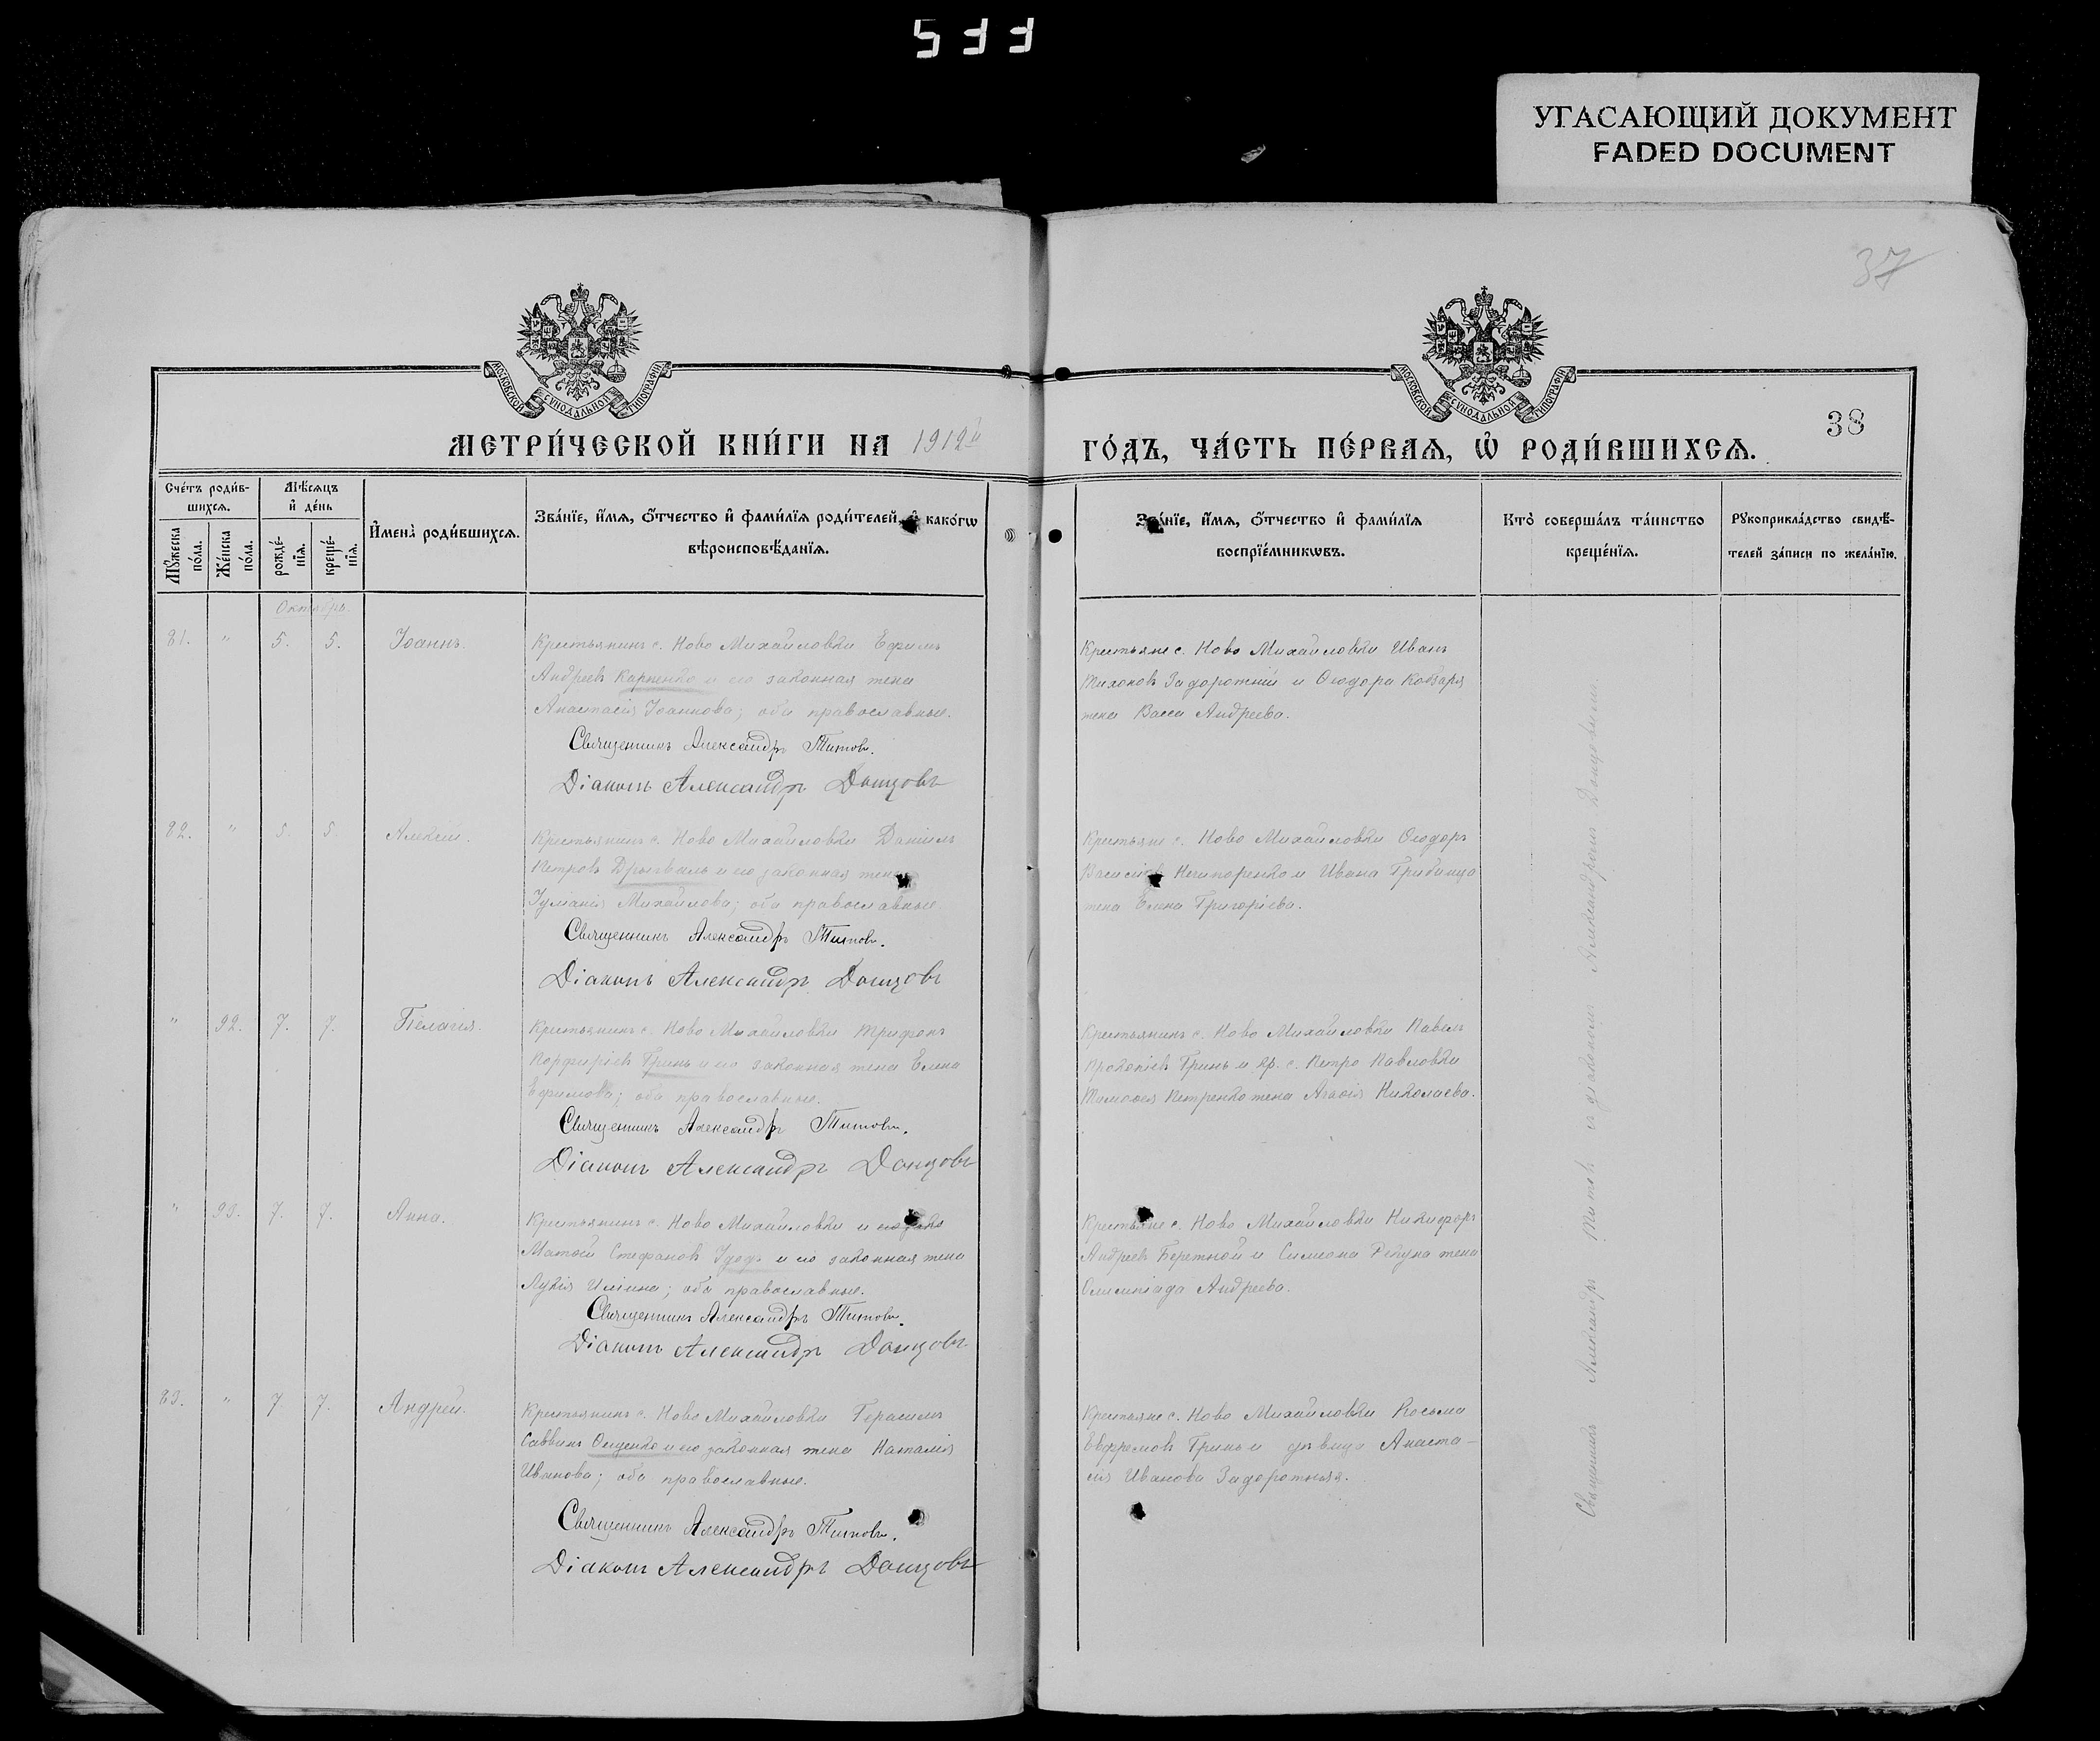 533
УГАСАЮЩИЙ ДОКУМЕНТ
FADED DOCUMENT
37
38
МОСКОВСКОЙ СУНОДАЛЬНОЙ ТИПОГРАФІИ
МОСКОВСКОЙ СУНОДАЛЬНОЙ ТИПОГРАФІИ
МЕТРИ́ЧЕСКОЙ КНИ́ГИ НА 1912й
ГО́ДЪ, ЧА́СТЬ ПЕ́РВАѦ, Ѡ РОДИ́ВШИХСѦ.
Сче́тъ роди́в-
шихсѧ.
Мꙋ́жеска по́ла.
Же́нска по́ла.
Мѣ́сѧцъ
и де́нь
рожде́-
нїѧ.
креще́-
нїѧ.
Имена̀ роди́вшихсѧ.
Зва́нїе, и́мѧ, о́тчество и фами́лїѧ роди́телей, и како́гѡ
вѣроисповѣ́данїѧ.
Зва́нїе, и́мѧ, о́тчество и фами́лїѧ
воспрїе́мникѡвъ.
Кто̀ соверша́лъ та́инство
креще́нїѧ.
Рꙋкоприкла́дство свидѣ́-
телей за́писи по жела́нїю.
Октябрь.
81. " 5. 5. Іоаннъ.
Крестьянинъ с. Ново Михайловки Ефимъ
Андреевъ Карпенко и его законная жена
Анастасія Іоаннова; оба православные.
Священникъ Александръ Титовъ.
Діаконъ Александръ Донцовъ
Крестьяне с. Ново Михайловки Иванъ
Тихоновъ Задорожній и Ѳеодора Кобзаря
жена Васса Андреева.
82. " 5. 5. Алексій.
Крестьянинъ с. Ново Михайловки Даніилъ
Петровъ и его законная жена
Іуліанія Михайлова; оба православные
Священникъ Александръ Титовъ.
Діаконъ Александръ Донцовъ
Крестьяне с. Ново Михайловки Ѳеодоръ
Василіевъ Нечипоренко и Ивана
жена Елена Григоріева.
" 92. 7. 7. Пелагія.
Крестьянинъ с. Ново Михайловки Трифонъ
Порфиріевъ Гринь и его законная жена Елена
Ефимова; оба православные.
Священникъ Александръ Титовъ.
Діаконъ Александръ Донцовъ
Крестьянинъ с. Ново Михайловки Павелъ
Прокопіевъ Гринь и кр. с. Петро Павловки
Тимоѳея Петренко жена Агаѳія Николаева.
" 93. 7. 7. Анна.
Крестьянинъ с. Ново Михайловки и его зако
Матѳей Стефановъ Удодъ и его законная жена
Лукія Иліина; оба православные.
Священникъ Александръ Титовъ.
Діаконъ Александръ Донцовъ
Крестьяне с. Ново Михайловки Никифоръ
Андреевъ Бережной и Симеона жена
Олимпіада Андреева.
83. " 7. 7. Андрей.
Крестьянинъ с. Ново Михайловки Герасимъ
Саввинъ Ощенко и его законная жена Наталія
Иванова; оба православные.
Священникъ Александръ Титовъ.
Діаконъ Александръ Донцовъ
Крестьяне с. Ново Михайловки Косьма
Евфремовъ Гринь и дѣвица Анаста-
сія Иванова Задорожняя.
Священникъ Александръ Титовъ съ діакономъ Александромъ Донцовымъ.